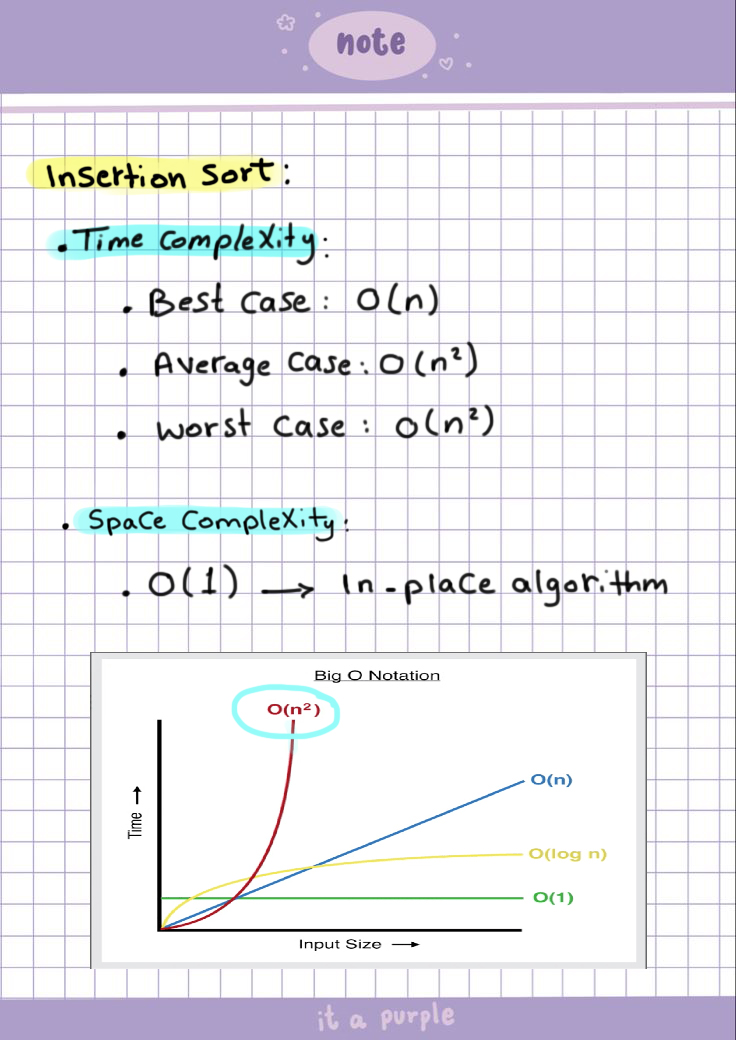 note
Insertion Sort:
• Time Complexity:
• Best Case: O(n)
• Average Case: O(n²)
• Worst Case: O(n²)
• Space Complexity:
• O(1) → In-place algorithm
Big O Notation
O(n²)
O(n)
O(log n)
O(1)
Time →
Input Size →
it a purple